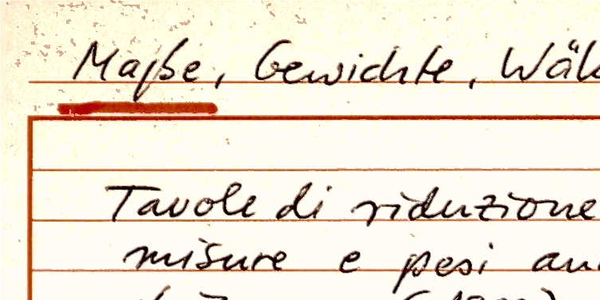 Maße, Gewichte, Wäh
Tavole di riduzione
misure e pesi an